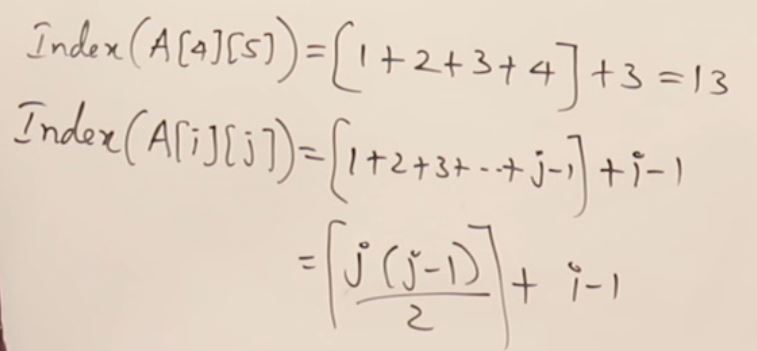 Index(A[4][5])=[1+2+3+4]+3=13
Index(A[i][j])=[1+2+3+--+j-1]+i-1
=[j(j-1)/2]+i-1